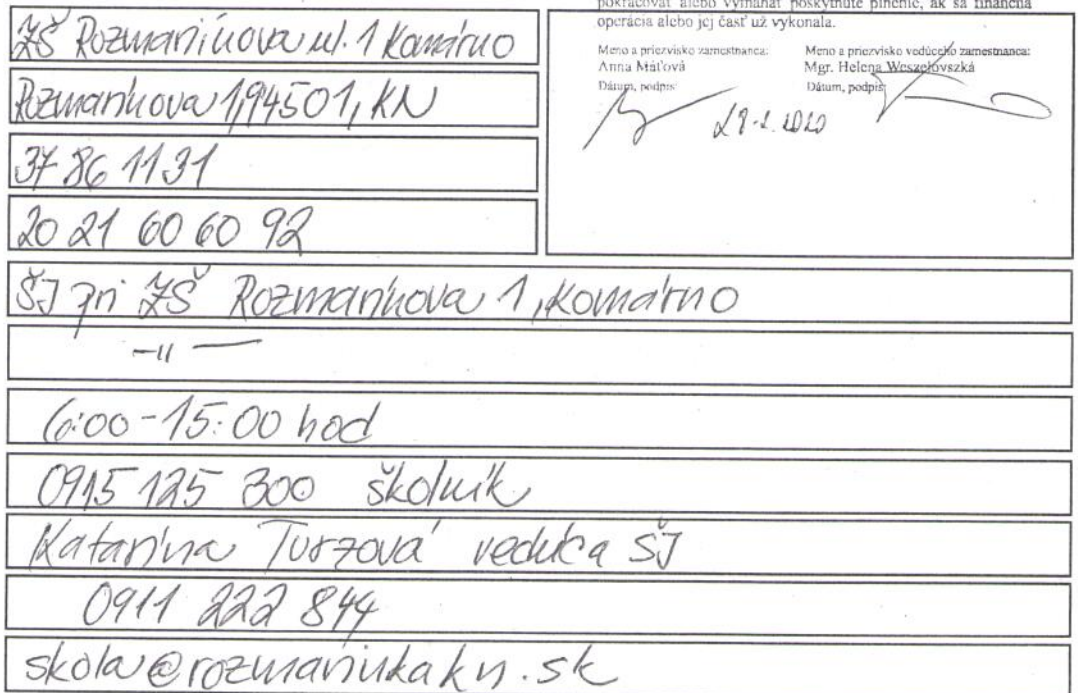 ZŠ Rozmarínova ul. 1 Komárno
Rozmarínova 1, 94501, KN
37 86 11 31
20 21 60 60 92
pokračovať alebo vymáhať poskytnuté plnenie, ak sa finančná
operácia alebo jej časť už vykonala.
Meno a priezvisko zamestnanca:
Anna Máťová
Dátum, podpis:
Meno a priezvisko vedúceho zamestnanca:
Mgr. Helena Weszelovszká
Dátum, podpis:
ŠJ pri ZŠ Rozmarínova 1, Komárno
-"-
6:00-15:00 hod
0915 125 300 školník
Katarína Turzová vedúca ŠJ
0911 222 844
skola@rozmarinkakn.sk